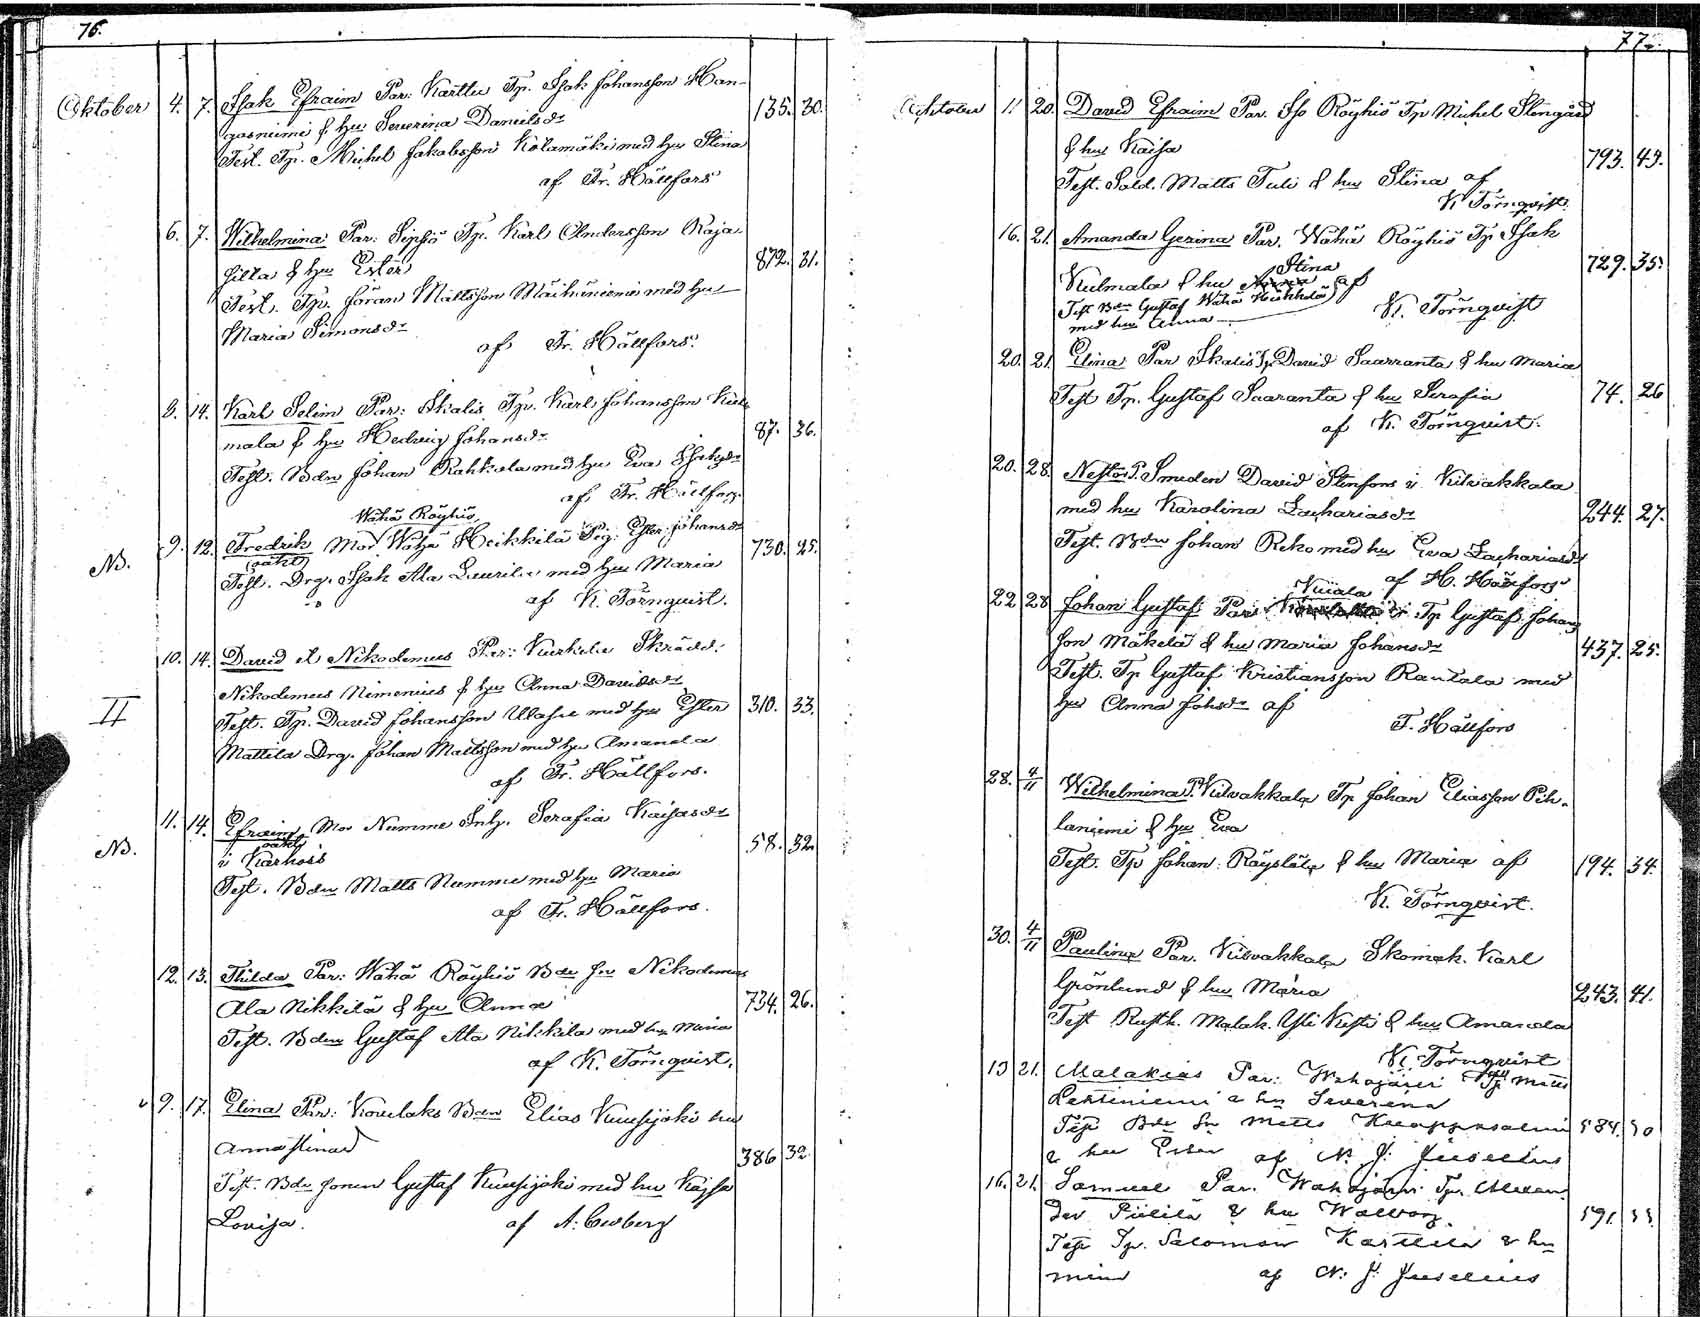 76.
Oktober 4. 7. Isak Efraim Par: Karttu Tp. Isak Johansson Han-
gasniemi & hu Severina Danielsdr 135. 30.
Test. Tp. Michel Jakobsson Kólamäki med hu Stina
af Fr. Hällfors
6. 7. Wilhelmina Par: Sipsiö Tp. Karl Andersson Raja
silta & hu Ester 872. 31.
Test. Tp. Jöran Mattsson med hu
Maria Simonsdr
af Fr. Hällfors.
8. 14. Karl Selim Par: Skalis Tp. Karl Johansson Kul
mala & hu Hedvig Johansdr 87. 36.
Test. Bdn Johan Rahkola med hu Eva Isaksdr
af Fr. Hällfors.
Wähä Röyhiö
NB. 9. 12. Fredrik Mor Wähä Heikkilä Pig. Ester Johansdr 730. 25.
(oäkt)
Test. Drg. Isak Ala Laurila med hu Maria
af K. Törnqvist.
10. 14. David et Nikodemus Par: Kurkela Skrädd.
II Nikodemus Nimenius & hu Anna Davidsdr 310. 33.
Test. Tp. David Johansson med hu Ester
Mattila Drg. Johan Mattsson med hu Amanda
af Fr. Hällfors.
11. 14. Efraim Mor Numme Inh. Serafia Kaisasdr
NB. oäkt 58. 32.
i Karhois
Test. Bdn Matts Numme med hu Maria
af Fr. Hällfors.
12. 13. Thilda Par: Wähä Röyhiö Bdn sn Nikodemus
Ala Nikkilä & hu Anna 734. 26.
Test. Bdn Gustaf Ala Nikkila med hu Maria
af K. Törnqvist.
9. 17. Elina Par: Kowelaks Bdn Elias Kuusijoki hu
Anna Stina 386 32
Test. Bdn sonen Gustaf Kuusijoki med hu Kajsa
Lovisa. af A.
77.
Oktober 11 20. David Efraim Par. Iso Röyhiö Tp Michel Stengård
& hu Kaisa 793. 43.
Test. Sold. Matts Tuli & hu Stina af
K Törnqvist.
16. 21. Amanda Gerina Par. Wähä Röyhiö Tp Isak
Stina
Kulmala & hu af 729. 35.
Test Bdn Gustaf Wähä Heikkilä
med hu Anna K. Törnqvist
20. 21. Elina Par Skalis Tp David Saarranta & hu Maria
Test Tp. Gustaf Saaranta & hu Serafia 74. 26
af K. Törnqvist.
20. 28. Nestor P. Smeden David Stenfors i Kilvakkala
med hu Karolina Zachariasdr 244. 27.
Test. Bdn Johan Reko med hu Eva Zachariasdr
af H. Hällfors
Kuiala
22 28 Johan Gustaf Par: Tp Gustaf Johans
son Mäkelä & hu Maria Johansdr 437. 25.
Test. Tp Gustaf Kristiansson Rantala med
hu Anna Johsdr af
F. Hällfors
28. 4/11 Wilhelmina P. Kilvakkala Tp Johan Eliasson Pih-
laniemi & hu Eva
Test. Tp Johan Röyslälä & hu Maria af 194. 34.
K. Törnqvist.
30. 4/11 Paulina Par. Kilvakkala Skomak. Karl
Grönlund & hu Maria 243. 41.
Test Rusth. Malak. Yli Kesti & hu Amanda
K. Törnqvist
13 21. Malakias Par: Wahojärvi Tp Matts
Penttiniemi & hu Severina
Test Bdn Sn Matts Knaappasalmi 584. 30
& hu Ester af N. J. Juselius
16. 21. Samuel Par. Wahojärvi Tp. Alexan
der Piililä & hu Walborg. 591.
Test Tp. Salomon Karttila & hu
Mina af N: J: Juselius